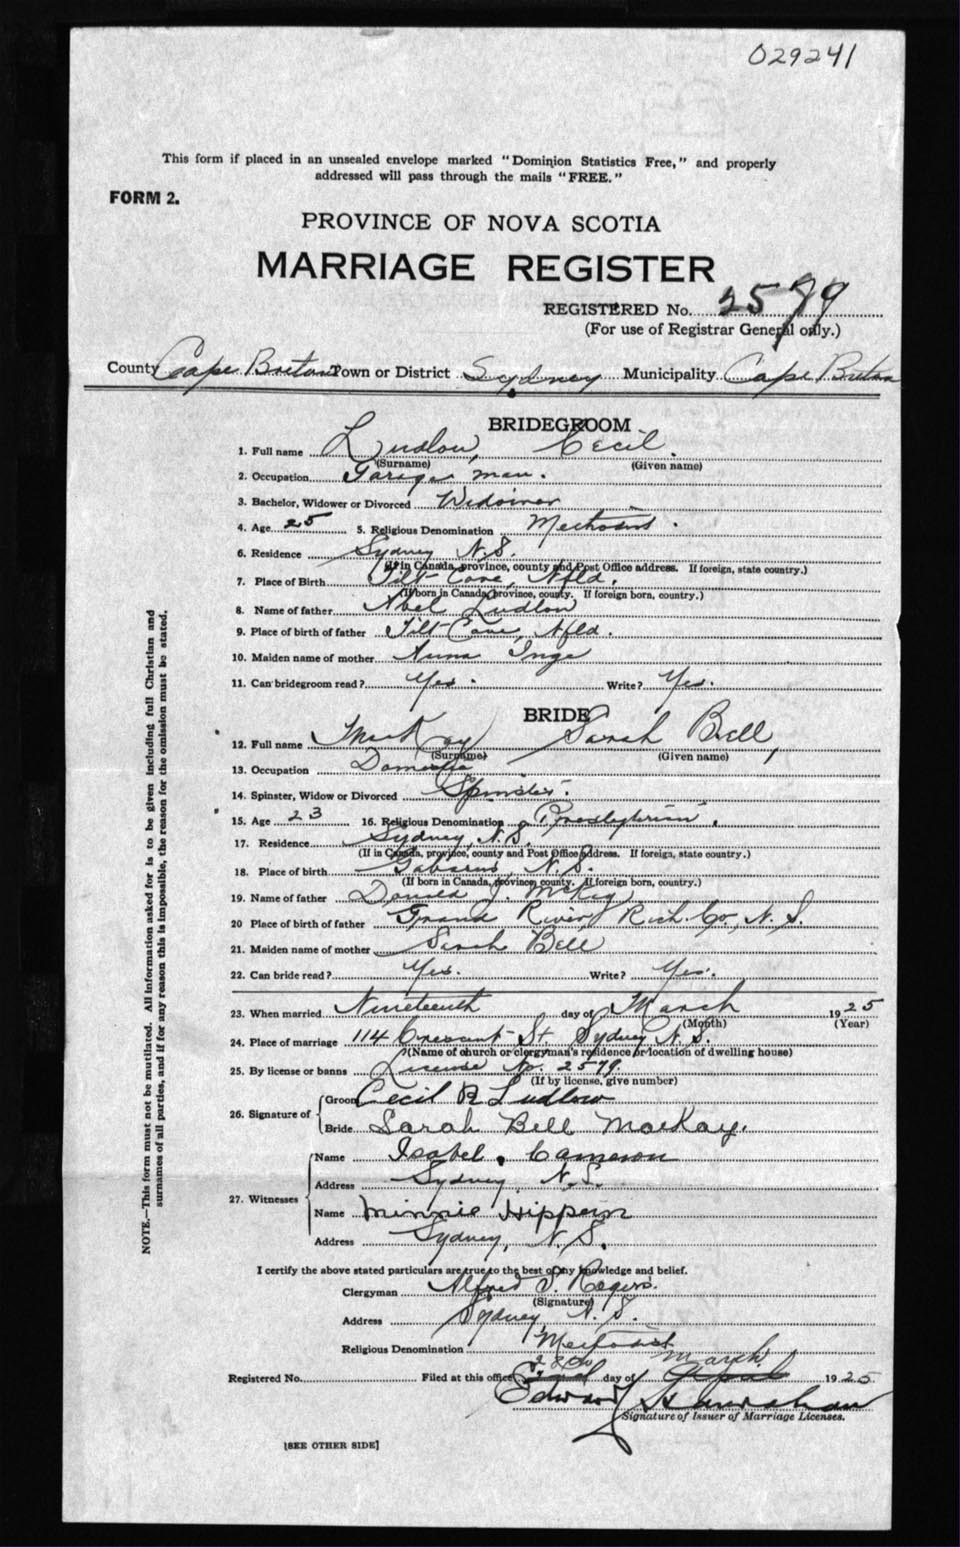 029241
This form if placed in an unsealed envelope marked "Dominion Statistics Free," and properly
addressed will pass through the mails "FREE."
FORM 2.
PROVINCE OF NOVA SCOTIA
MARRIAGE REGISTER
REGISTERED No. 2579
(For use of Registrar General only.)
County Cape Breton Town or District Sydney Municipality Cape Breton
BRIDEGROOM
1. Full name Ludlow, Cecil.
(Surname) (Given name)
2. Occupation Garage man.
3. Bachelor, Widower or Divorced Widower
4. Age 25 5. Religious Denomination Methodist.
6. Residence Sydney N.S.
(If in Canada, province, county and Post Office address. If foreign, state country.)
7. Place of Birth Tilt Cove, Nfld.
(If born in Canada, province, county. If foreign born, country.)
8. Name of father Abel Ludlow
9. Place of birth of father Tilt Cove, Nfld.
10. Maiden name of mother Anna Inge
11. Can bridegroom read? Yes. Write? Yes.
BRIDE
12. Full name MacKay Sarah Bell,
(Surname) (Given name)
13. Occupation Domestic
14. Spinster, Widow or Divorced Spinster.
15. Age 23 16. Religious Denomination Presbyterian.
17. Residence Sydney, N.S.
(If in Canada, province, county and Post Office address. If foreign, state country.)
18. Place of birth Gabarus, N.S.
(If born in Canada, province county. If foreign born, country.)
19. Name of father Donald J. McKay
20 Place of birth of father Grand River, Rich. Co., N.S.
21. Maiden name of mother Sarah Bell
22. Can bride read? Yes. Write? Yes.
23. When married Nineteenth day of March 1925
(Month) (Year)
24. Place of marriage 114 Crescent St. Sydney N.S.
(Name of church or clergyman's residence or location of dwelling house)
25. By license or banns License No. 2579.
(If by license, give number)
26. Signature of Groom Cecil R Ludlow
Bride Sarah Bell MacKay.
27. Witnesses
Name Isabel Cameron
Address Sydney, N.S.
Name Minnie Hippern
Address Sydney, N.S.
I certify the above stated particulars are true to the best of my knowledge and belief.
Clergyman Alfred S. Rogers.
(Signature)
Address Sydney N.S.
Religious Denomination Methodist
March
Registered No. Filed at this office day of April 1925
Edward
Signature of Issuer of Marriage Licenses.
[SEE OTHER SIDE]
NOTE.—This form must not be mutilated. All information asked for is to be given including full Christian and
surnames of all parties, and if for any reason this is impossible, the reason for the omission must be stated.